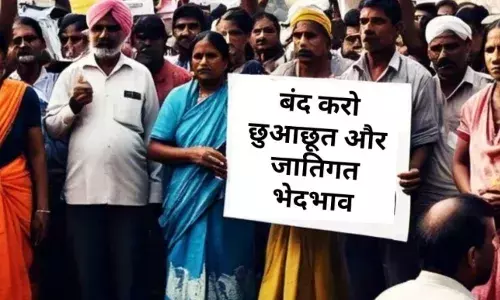 बंद करो
छुआछूत और
जातिगत
भेदभाव